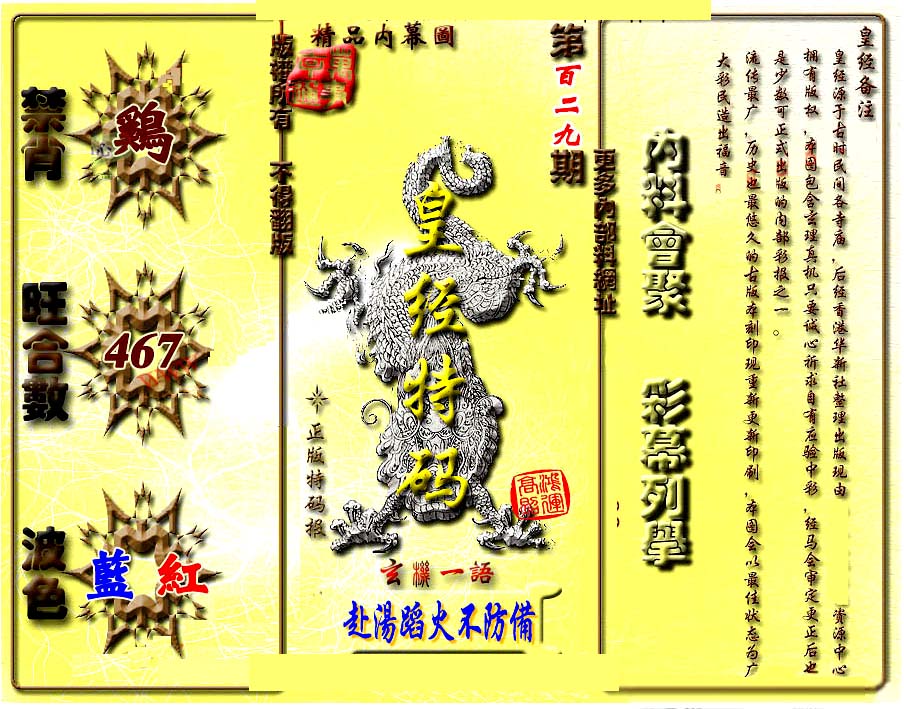 皇经备注
皇经源于古时民间各寺庙，后经香港华新社整理出版现由
資源中心
拥有版权，本图包含玄理真机只要诚心祈求自有应验中彩，经马会审定更正后也
是少数可正式出版的内部彩报之一。
流传最广，历史也最悠久的古版本刻印现重新更新印刷，本图会以最佳状态为广
大彩民造出福音
内料會聚
彩幕列擧
更多内部料網址
第百二九期
精品内幕圖
皇经特码
正版特码报
鴻運高照
玄機一語
赴湯蹈火不防備
版權所有
不得翻版
禁肖
鷄
旺合數
467
波色
藍 紅